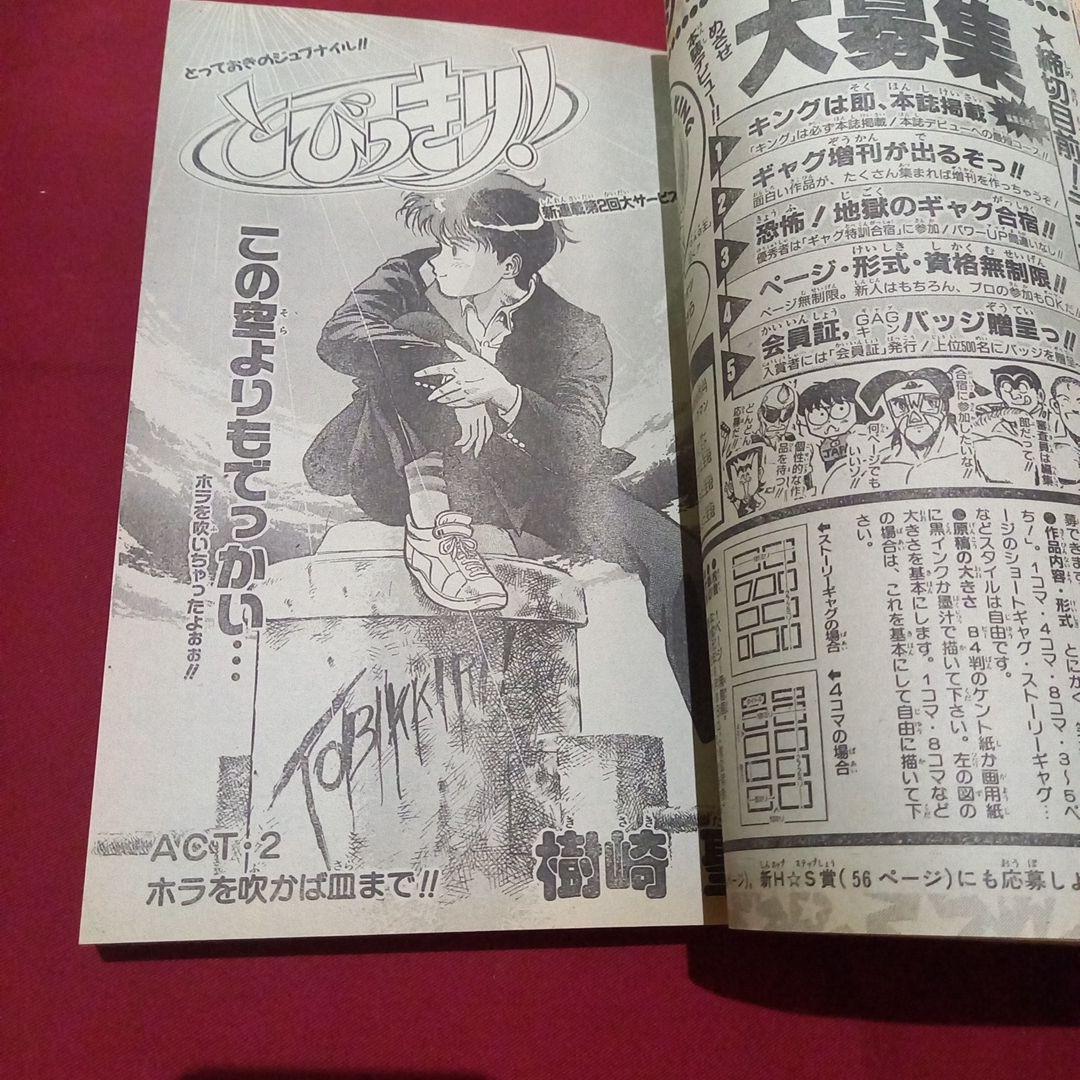 とっておきのジュブナイル!!
とびっきり!
新連載第2回大サービス
この空よりもでっかい…
ホラを吹いちゃったよぉぉ!!
TOBIKKIRI!
ACT・2
ホラを吹かば皿まで!!
樹崎
★締切目前!!
大募集
めざせ
本誌デビュー!!
KING
1
キングは即、本誌掲載
「キング」は必ず本誌掲載!本誌デビューへの最短コース!!
2
ギャグ増刊が出るぞっ!!
面白い作品が、たくさん集まれば増刊を作っちゃうぞ!
3
恐怖!地獄のギャグ合宿!!
優秀者は「ギャグ特訓合宿」に参加!パワーUP間違いなし!!
4
ページ・形式・資格無制限!!
ページ無制限。新人はもちろん、プロの参加もOKだ
5
会員証,GAGキングバッジ贈呈っ!!
入賞者には「会員証」発行!上位500名にバッジを贈呈
審査員は編集部だって!!
合宿に参加したいな!!
何ページでもいいい!!
個性的な作品を待つ!!
どんどん応募だ!!
募できま
●作品内容・形式 とにかく
ち!。1コマ・4コマ・8コマ・3〜5ペ
ージのショートギャグ・ストーリーギャグ…
などスタイルは自由です。
●原稿の大きさ B4判のケント紙か画用紙
に黒インクか墨汁で描いて下さい。左の図の
大きさを基本にします。1コマ・8コマなど
の場合は、これを基本にして自由に描いて下
さい。
←ストーリーギャグの場合
←4コマの場合
ージ)。新H☆S賞(56ページ)にも応募しよ